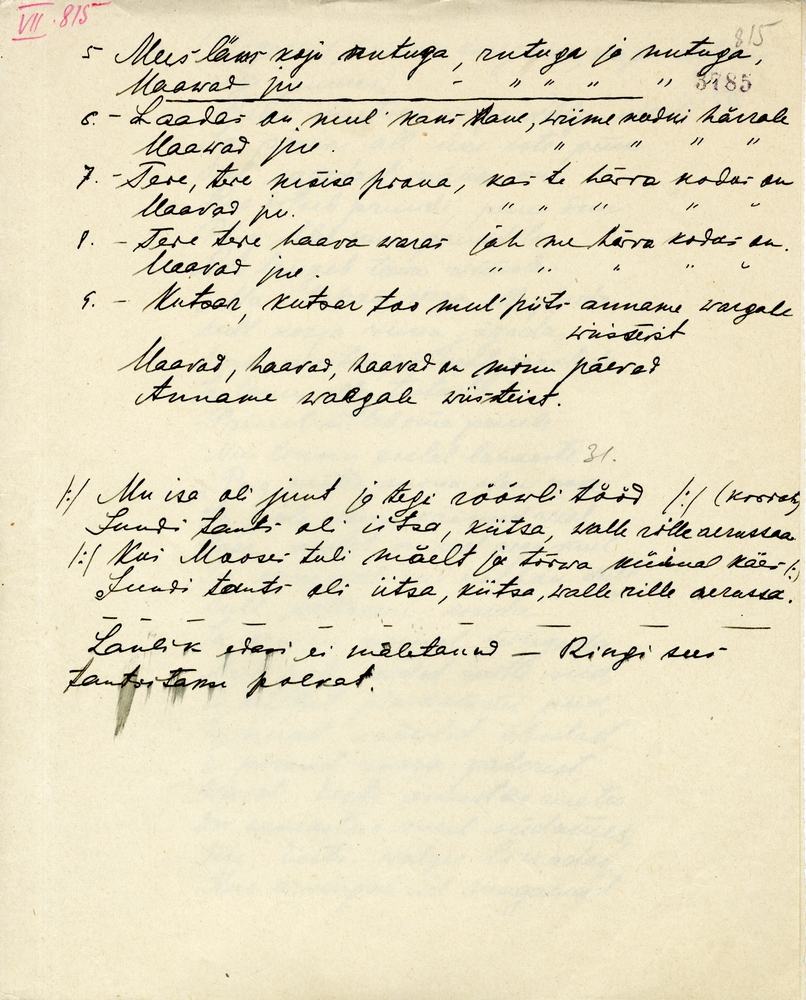 VII. 815
815
3785
5 Mees läks koju rutuga, rutuga ja rutuga,
Haavad jne - " " " " "
6. - Laadas on mul kaks kane, wiime neidni härrale
Haawad jne. " " " "
7. - Tere, tere proua, kas te härra kodus on
Haavad jne. " " " " "
8. - Tere tere haava waras jah me härra kodus on.
Haavad jne. " " " " "
9. - Kutsar, kutsar too mul' piits anname wargale
wiisteist
Haavad, haavad, haavad on minu päevad
Anname wargale wiisteist.
31.
/:/ Mu isa oli juut ja tegi rööwli tööd /:/ (korrat)
Juudi tants oli iitsa, kiitsa, walle rille aerussaa.
/:/ Kui Mooses tuli mäelt ja tõrwa küünal käes /:/
Juudi tants oli iitsa, kiitsa, walle rille aerussa.
Laulik edasi ei mäletanud – Ringi sees
tantsitakse polkat.